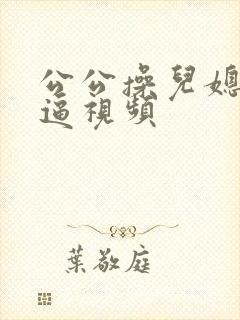 公公操兒媳
逼視頻
葉敬庭